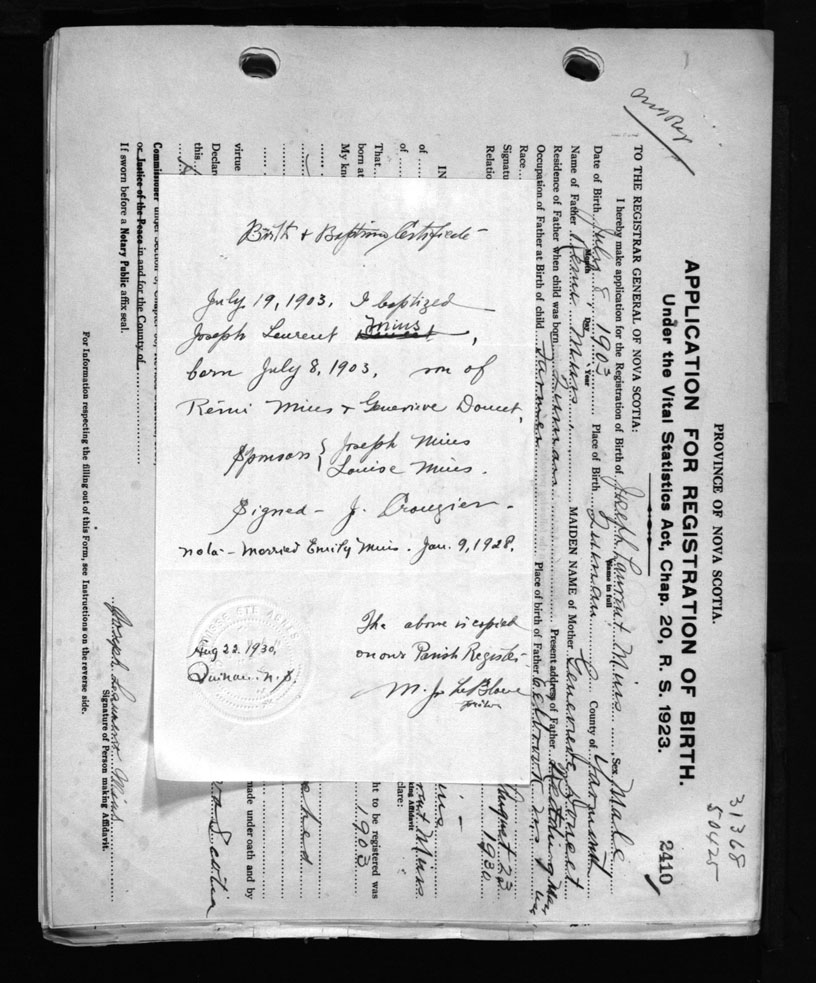 PROVINCE OF NOVA SCOTIA.
31368
50425
APPLICATION FOR REGISTRATION OF BIRTH.
2410
Under the Vital Statistics Act, Chap. 20, R. S. 1923.
TO THE REGISTRAR GENERAL OF NOVA SCOTIA:
I hereby make application for the Registration of Birth of Joseph Laurent Mius Sex Male
Name in full
Date of Birth July 8 1903 Place of Birth Quinan County of Yarmouth
Month Day Year
Name of Father Remi Mius MAIDEN NAME of Mother Genevieve Doucet
Residence of Father when child was born Quinan Present address of Father
Occupation of Father at Birth of child Farmer Place of birth of Father
Race
Signatu
August 22
Relatio
1930
IN
of
of
rent Mius
king Affidavit
clare:
That
ht to be registered was
born at
1903
My kn
virtue
Declare
made under oath and by
this
Scotia
Commissioner under Section
or Justice of the Peace in and for the County of
If sworn before a Notary Public affix seal.
Joseph Laurent Mius
Signature of Person making Affidavit.
For Information respecting the filling out of this Form, see Instructions on the reverse side.
Birth & Baptism Certificate
July 19, 1903, I baptized
Joseph Laurent Mius,
born July 8, 1903, son of
Rémi Mius & Genevieve Doucet,
Sponsors { Joseph Mius
Louise Mius.
Signed - J. Crouzier.
nota - Married Emily Mius. Jan. 9, 1928.
The above is copied
on our Parish Register.
Aug 22. 1930,
Quinan. N. S.
M. J. LeBlanc